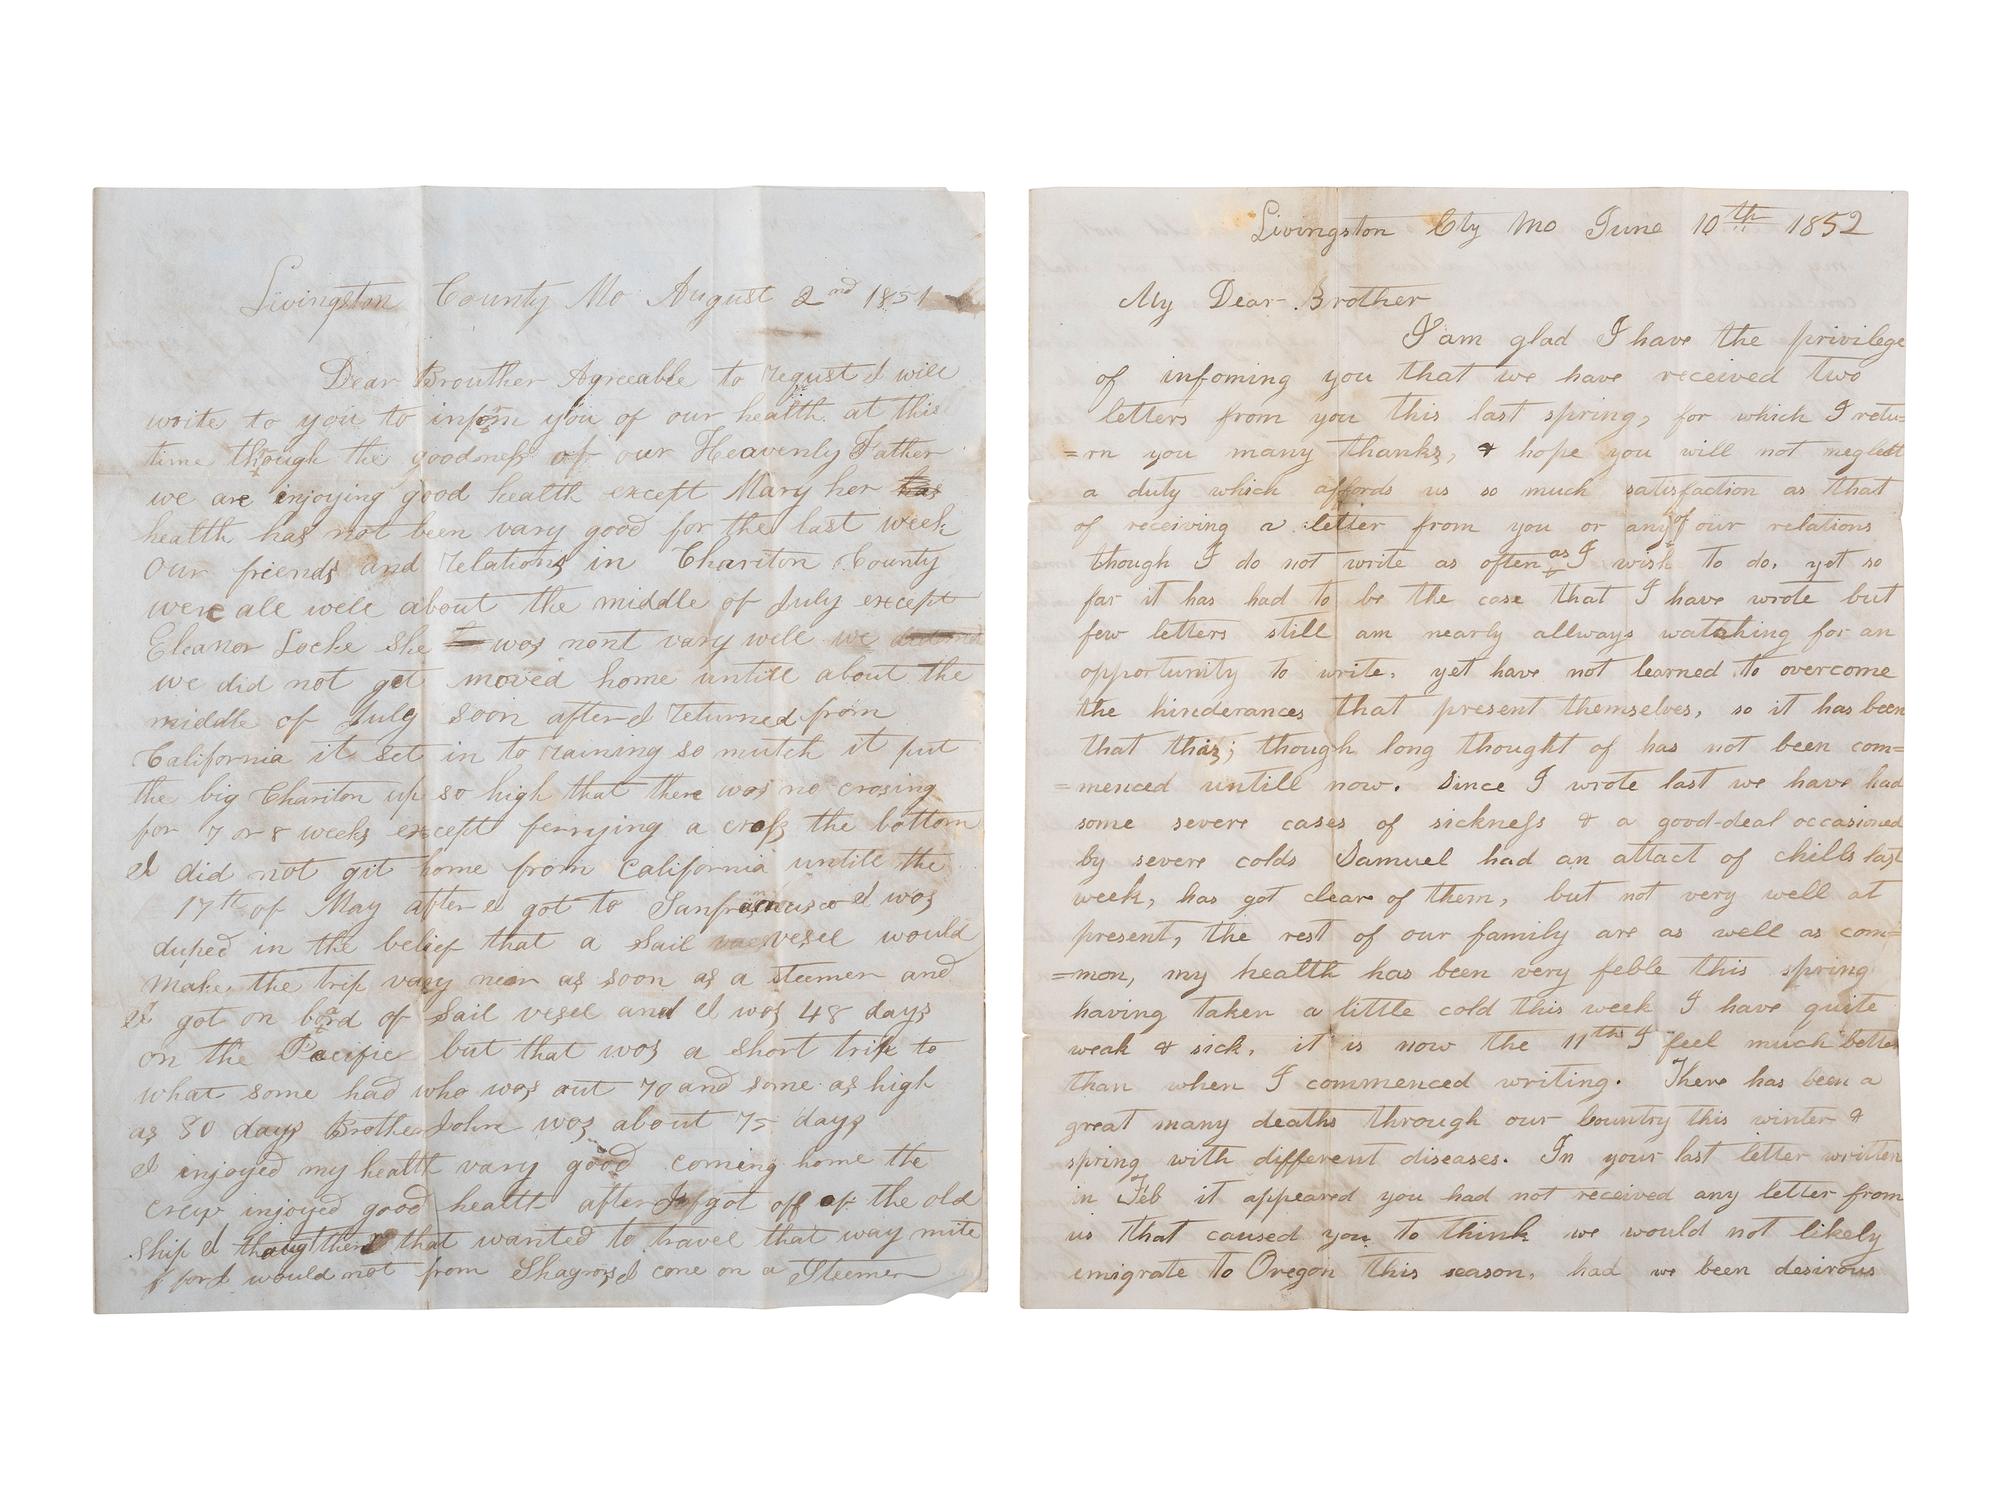 Livingston County Mo August 2nd 1851
Dear Brouther Agreeable to request I will
write to you to inform you of our health at this
time through the goodness of our Heavenly Father
we are injoying good health except Mary her has
health has not been vary good for the last week
Our friends and relations in Chariton County
were all well about the middle of July except
Eleanor Locke she was nont vary well we
we did not get moved home untill about the
middle of July soon after I returned from
California it set in to raining so mutch it put
the big Chariton up so high that there was no crosing
for 7 or 8 weeks except ferrying a cross the bottom
I did not git home from California untill the
17th of May after I got to Sanfrancisco I was
duped in the belief that a Sail vesel would
make the trip vary near as soon as a steemer and
I got on bord of Sail vesel and I was 48 days
on the Pacific but that was a short trip to
what some had who was out 70 and some as high
as 80 days Brother John was about 75 days
I injoyed my health vary good coming home the
crew injoyed good health after I got off of the old
ship I that wanted to travel that way mite
for I would not from I come on a Steemer
Livingston Cty Mo June 10th 1852
My Dear Brother
I am glad I have the privilege
of infoming you that we have received two
letters from you this last spring, for which I retu=
=rn you many thanks, & hope you will not neglect
a duty which affords us so much satisfaction as that
of receiving a letter from you or any of our relations
though I do not write as often as I wish to do, yet so
far it has had to be the case that I have wrote but
few letters still am nearly allways watching for an
opportunity to write, yet have not learned to overcome
the hinderances that present themselves, so it has been
that this; though long thought of has not been com=
=menced untill now. Since I wrote last we have had
some severe cases of sickness & a good-deal occasioned
by severe colds Samuel had an attact of chills last
week, has got clear of them, but not very well at
present, the rest of our family are as well as com=
=mon, my health has been very feble this spring
having taken a little cold this week I have quite
weak & sick, it is now the 11th I feel much better
than when I commenced writing. There has been a
great many deaths through our Country this winter &
spring with different diseases. In your last letter written
in Feb it appeared you had not received any letter from
us that caused you to think we would not likely
emigrate to Oregon this season, had we been desirous